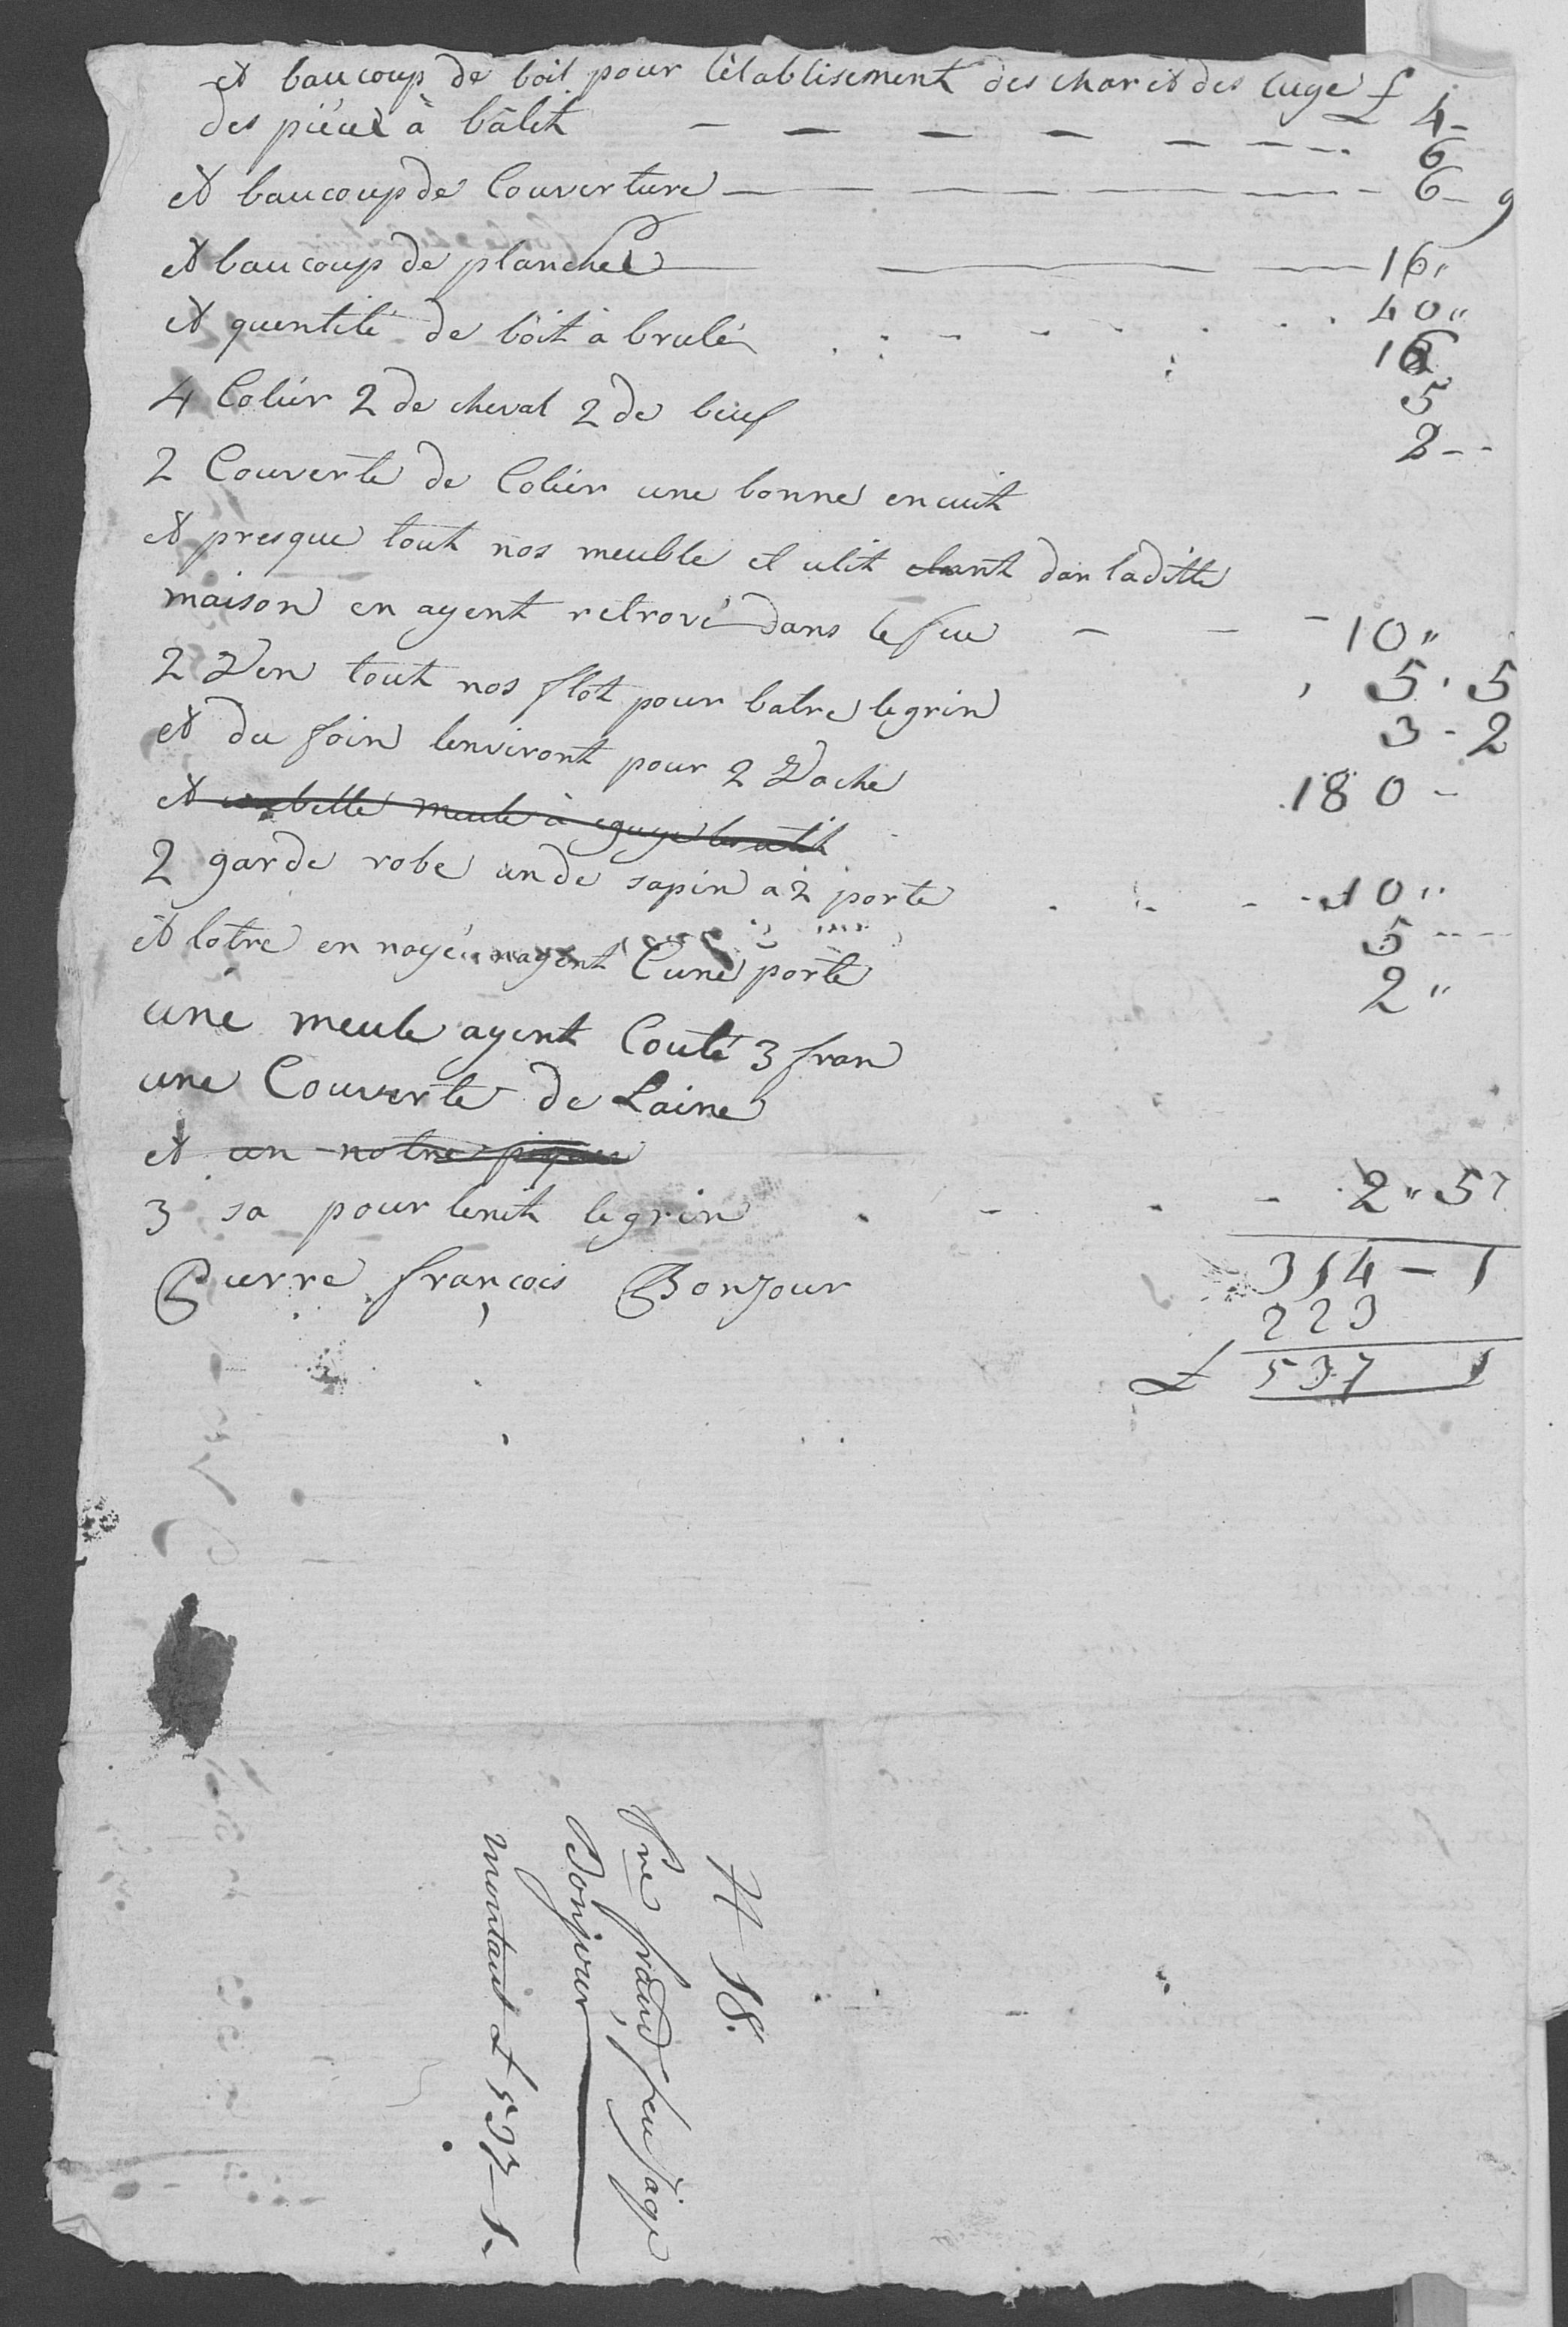 et baucoup de boit pour létablisement des char et des luge £ 4-
des piéue à bâlit - - - - - - - 6
et baucoup de Couverture - - - - - 6- 9
et baucoup de planche - - - 16"
et quentité de bôit à brulé . . - - . . . 40"
4 Coliér 2 de cheval 2 de beuf 16
2 Couverte de Coliér une bonne en cuit 5
2 - -
et presque tout nos meuble et utit etant dan laditte
maison en ayent retrové dans le feu - - - 10"
2 Ven tout nos flot pour batre le grin 5 . 5
et du foin lenviront pour 2 Vache 3 - 2
180 -
et une belle meule à eguije les utit
2 garde robe un de sapin a 2 porte . - - - 10"
et lotre en noyér nayent Cune porte 5 - - -
une meule ayent Couté 3 fran 2 "
une Couverte de Laine
et un notre
3 sa pour tenit le grin . - . - 2 " 5
Pierre françois Bonjour
314 - 1
223
£ 537 1
N 18.
Pre franç feu Jâqe
Bonjour
montant £ 537-1.